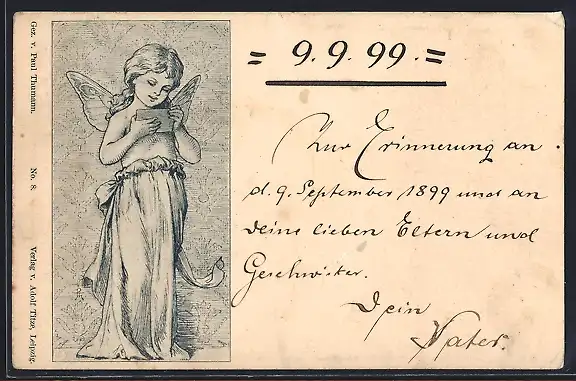 Gez. v. Paul Thumann. No. 8. Verlag v. Adolf Titze, Leipzig.
= 9. 9. 99. =
Zur Erinnerung an
d. 9. September 1899 und an
deine lieben Eltern und
Geschwister.
Dein
Vater.